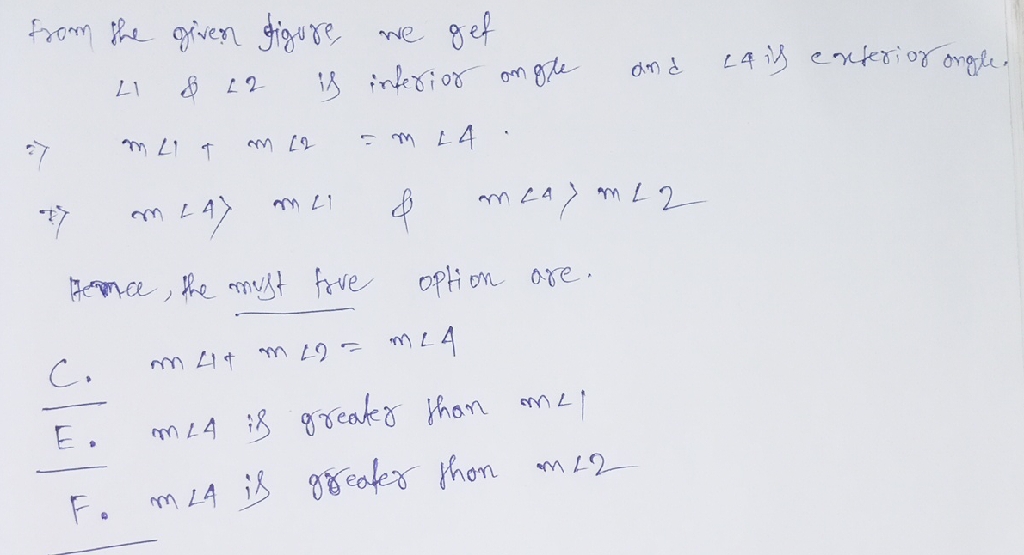 from the given figure, we get
∠1 & ∠2 is interior angle and ∠4 is exterior angle.
⇒ m∠1 + m∠2 = m∠4.
⇒ m∠4 > m∠1 & m∠4 > m∠2
Hence, the must true option are.
C. m∠1 + m∠2 = m∠4
E. m∠4 is greater than m∠1
F. m∠4 is greater than m∠2